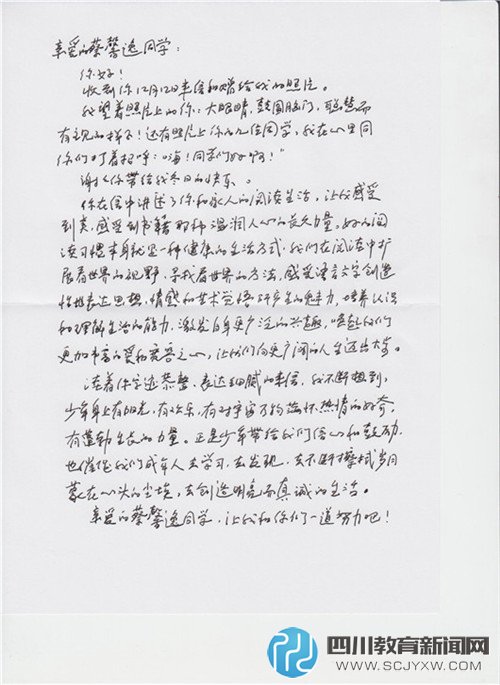 亲爱的蔡馨逸同学：
你好！
收到你12月12日来信和赠给我的照片。
我望着照片上的你：大眼睛，鼓圆脑门，聪慧而
有主见的样子！还有照片上你的几位同学，我在心里同
你们打着招呼：“嗨！同学们好啊！”
谢谢你带给我冬日的快乐。
你在信中讲述了你和家人的阅读生活，让我感受
到美，感受到书籍那种温润人心的长久力量。好的阅
读习惯本身就是一种健康的生活方式，我们在阅读中扩
展看世界的视野，寻找看世界的方法，感受语言文字创造
性地表达思想、情感和艺术学悟所产生的魅力，培养认识
和理解生活的能力，激发自身更广泛的兴趣，唤起我们
更加丰富的爱和良善之心，让我们向更广阔的人生迈出大步。
读着你字迹恭整，表达细腻的来信，我不断想到，
少年身上有阳光，有欢乐，有对宇宙万物满怀热情的好奇，
有蓬勃生长的力量。正是少年带给我们信心和鼓励，
也催促我们成年人去学习，去发现，去不断擦拭岁月
蒙在心头的尘埃，去创造明亮而真诚的生活。
亲爱的蔡馨逸同学，让我和你们一道努力吧！
四川教育新闻网
WWW.SCJYXW.COM